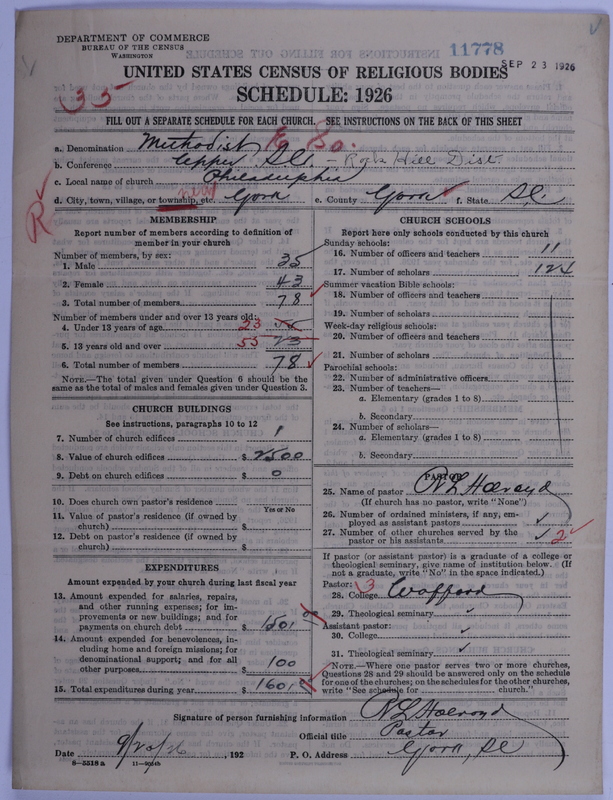 DEPARTMENT OF COMMERCE
BUREAU OF THE CENSUS
WASHINGTON
11778
SEP 23 1926
UNITED STATES CENSUS OF RELIGIOUS BODIES
SCHEDULE: 1926
35
FILL OUT A SEPARATE SCHEDULE FOR EACH CHURCH. SEE INSTRUCTIONS ON THE BACK OF THIS SHEET
a. Denomination Methodist E So.
b. Conference Upper S.C. - Rock Hill Dist.
c. Local name of church Philadelphia
d. City, town, village, or township, etc. near York e. County York f. State S.C.
R
MEMBERSHIP
Report number of members according to definition of
member in your church
Number of members, by sex:
1. Male 35
2. Female 43
3. Total number of members 78
Number of members under and over 13 years old:
4. Under 13 years of age 23
5. 13 years old and over 55 73
6. Total number of members 78
NOTE.—The total given under Question 6 should be the
same as the total of males and females given under Question 3.
CHURCH BUILDINGS
See instructions, paragraphs 10 to 12
7. Number of church edifices 1
8. Value of church edifices $ 2500
9. Debt on church edifices $ 0
10. Does church own pastor's residence
Yes or No
11. Value of pastor's residence (if owned by
church) $
12. Debt on pastor's residence (if owned by
church) $
EXPENDITURES
Amount expended by your church during last fiscal year
13. Amount expended for salaries, repairs,
and other running expenses; for im-
provements or new buildings; and for
payments on church debt $ 1501
14. Amount expended for benevolences, in-
cluding home and foreign missions; for
denominational support; and for all
other purposes $ 100
15. Total expenditures during year $ 1601
CHURCH SCHOOLS
Report here only schools conducted by this church
Sunday schools:
16. Number of officers and teachers 11
17. Number of scholars 124
Summer vacation Bible schools:
18. Number of officers and teachers
19. Number of scholars
Week-day religious schools:
20. Number of officers and teachers
21. Number of scholars
Parochial schools:
22. Number of administrative officers
23. Number of teachers—
a. Elementary (grades 1 to 8)
b. Secondary
24. Number of scholars—
a. Elementary (grades 1 to 8)
b. Secondary
PASTOR
25. Name of pastor R L Holroyd
(If church has no pastor, write "None")
26. Number of ordained ministers, if any, em-
ployed as assistant pastors
27. Number of other churches served by the
pastor or his assistants 2
If pastor (or assistant pastor) is a graduate of a college or
theological seminary, give name of institution below. (If
not a graduate, write "No" in the space indicated.)
Pastor: 3
28. College Wofford
29. Theological seminary
Assistant pastor:
30. College
31. Theological seminary
NOTE.—Where one pastor serves two or more churches,
Questions 28 and 29 should be answered only on the schedule
for one of the churches; on the schedules for the other churches,
write "See schedule for church."
Signature of person furnishing information R L Holroyd
Official title Pastor
Date 9/20/26, 192 P. O. Address York, SC
8—5518 a